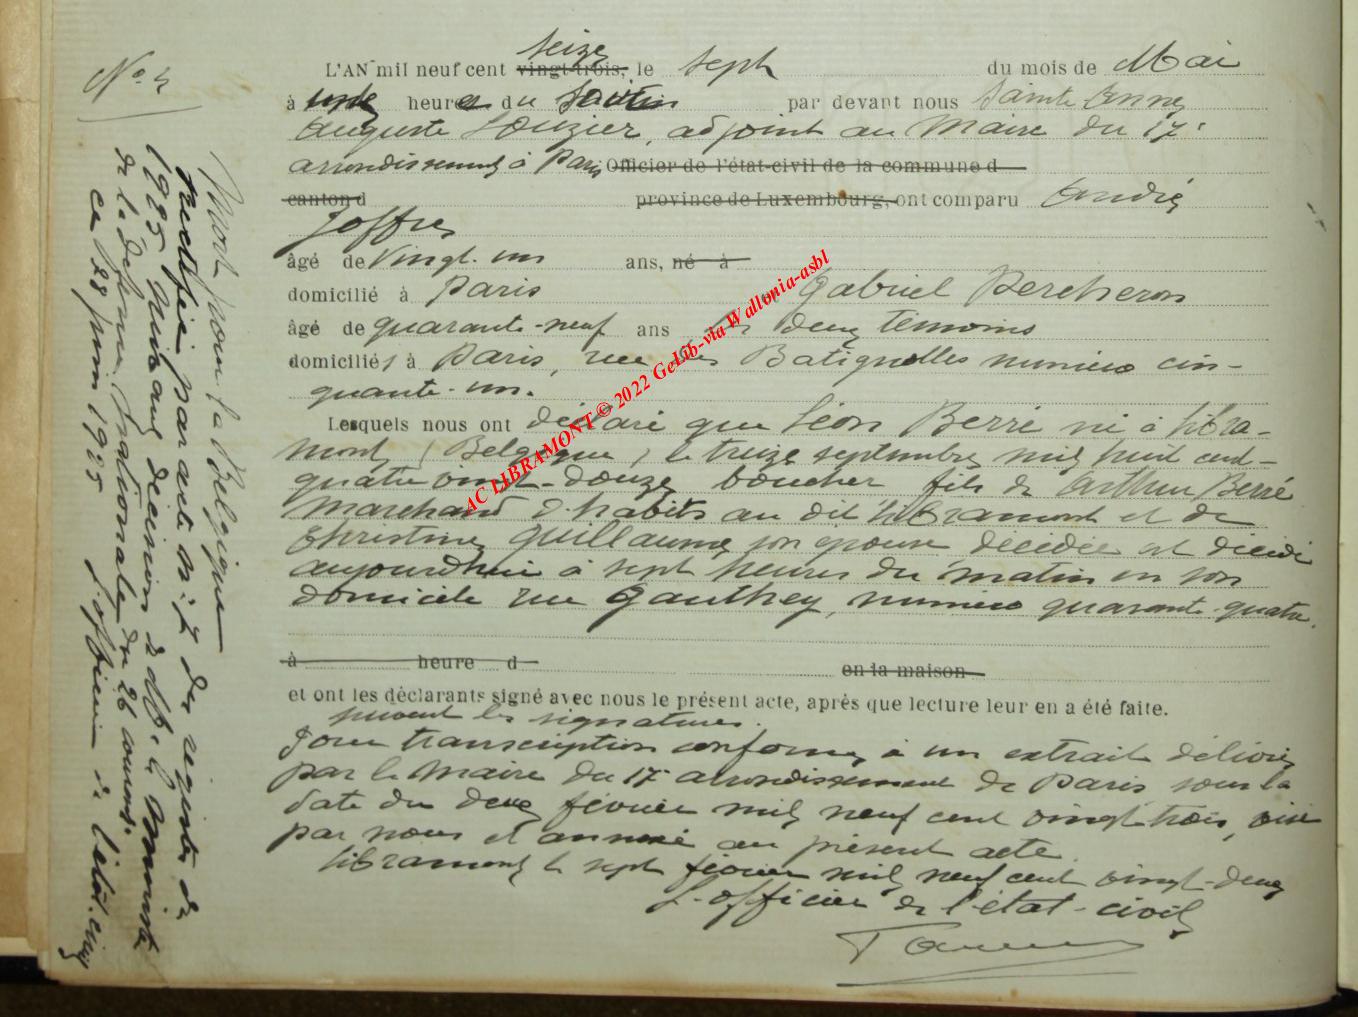 N° 4
Mort pour la Belgique
rectifié par acte n° 2 du registre de
1925 suite aux décisions de Mr le Ministre
de la défense nationale du 26 courant.
ce 28 juin 1925 L'officier de l'état-civil
L'AN mil neuf cent seize vingt-trois, le sept du mois de Mai
à heures du par devant nous Sainte Anne
Auguste Louzier, adjoint au Maire du 17e
arrondissement à Paris Officier de l'état-civil de la commune d
canton d province de Luxembourg, ont comparu André
Joffres
âgé de Vingt-un ans, né à
domicilié à Paris et Gabriel Percheron
âgé de quarante-neuf ans les deux témoins
domiciliés à Paris, rue des Batignolles numéro cin-
quante-un.
Lesquels nous ont déclaré que Léon Berré né à Libra-
mont (Belgique) le treize septembre mil huit cent-
quatre vingt-douze, boucher fils de Arthur Berré
Marchand d'habits au dit Libramont et de
Christine Guillaume, son épouse décédée est décédé
aujourd'hui à sept heures du matin en son
domicile rue Gauthey, numéro quarante-quatre.
à heure d en la maison
et ont les déclarants signé avec nous le présent acte, après que lecture leur en a été faite.
suivent les signatures.
Pour transcription conforme à un extrait délivré
par le Maire du 17e arrondissement de Paris sous la
date du deux février mil neuf cent vingt trois, visé
par nous et annexé au présent acte.
Libramont le sept février mil neuf cent vingt-deux
L'officier de l'état-civil
AC LIBRAMONT © 2022 GeLib-via Wallonia-asbl